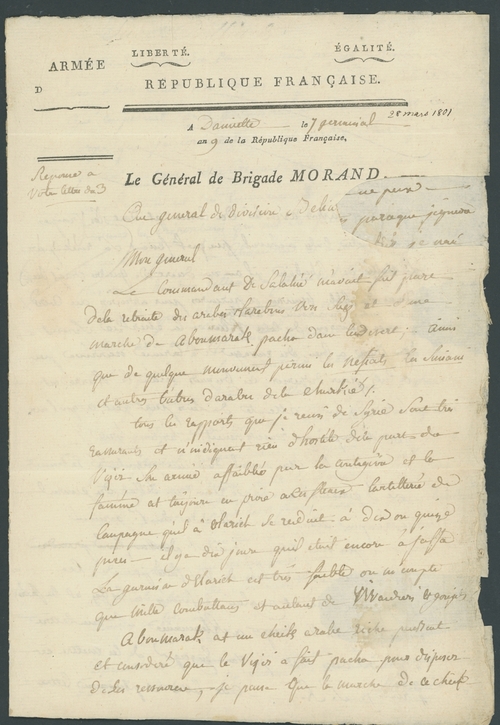 LIBERTÉ. ÉGALITÉ.
ARMÉE
D
RÉPUBLIQUE FRANÇAISE.
A Damiette le 7 germinal 28 mars 1801
an 9 de la République Française.
Reponse a
Votre lettre du 3
Le Général de Brigade MORAND.
general de division Belia
Mon general
Le Commandant De Salahié m'avait fait part
de la retraite des arabes
marche de Aboumarak pacha dans le desert; ainsi
que de quelque mouvement parmi les
et autres tribus d'arabes de la
tous les rapports que je reçois de Syrie sont très
rassurants et n'indiquent rien d'hostile de la part du
Vizir Son armée affaiblie par la contagion et la
famine est toujours en proie a ces fleaux l'artillerie de
Campagne qu'il a à Elarich se reduit à dix ou quinze
pieces il y a dix jours qu'il etait encore a jaffa
La garnison d'Elarich est très faible on ne compte
que mille combattans et autant de
Aboumarak est un cheik arabe riche puissant
et consideré que le Vizir a fait pacha pour disposer
de ses ressources, je pense que la marche de ce cheik